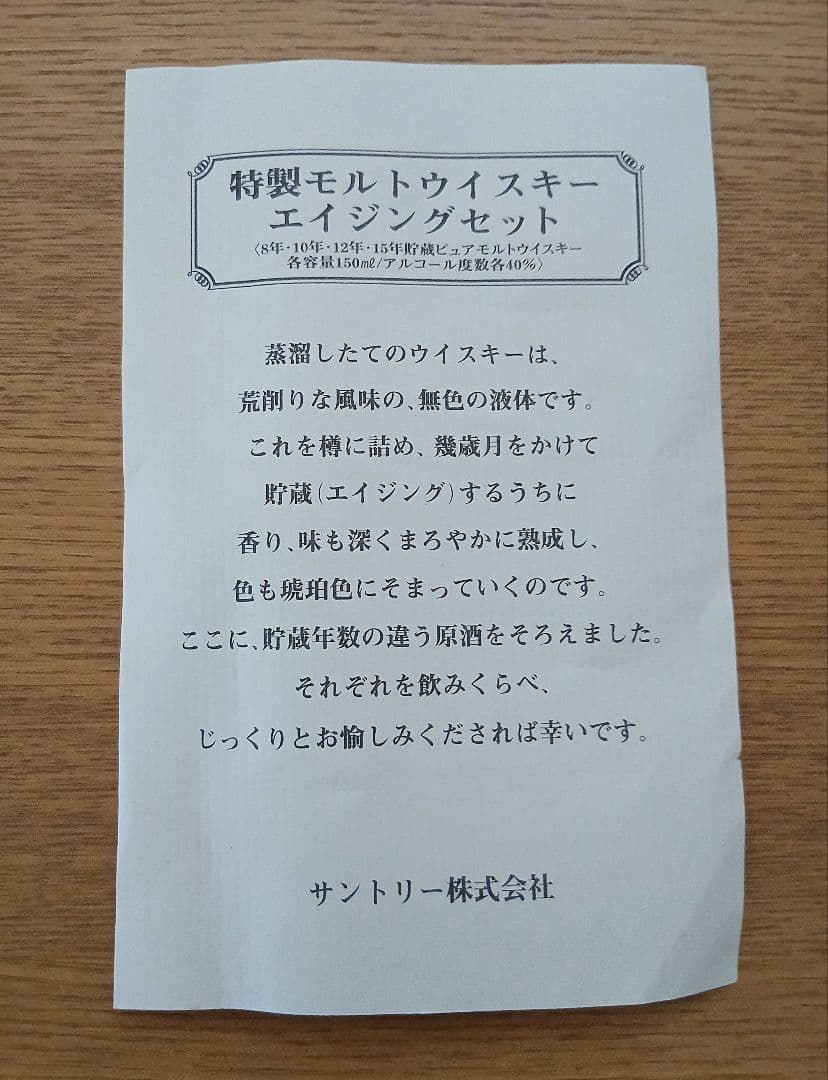 特製モルトウイスキー
エイジングセット
〈8年・10年・12年・15年貯蔵ピュアモルトウイスキー
各容量150㎖/アルコール度数各40%〉
蒸溜したてのウイスキーは、
荒削りな風味の、無色の液体です。
これを樽に詰め、幾歳月をかけて
貯蔵(エイジング)するうちに
香り、味も深くまろやかに熟成し、
色も琥珀色にそまっていくのです。
ここに、貯蔵年数の違う原酒をそろえました。
それぞれを飲みくらべ、
じっくりとお愉しみくだされば幸いです。
サントリー株式会社